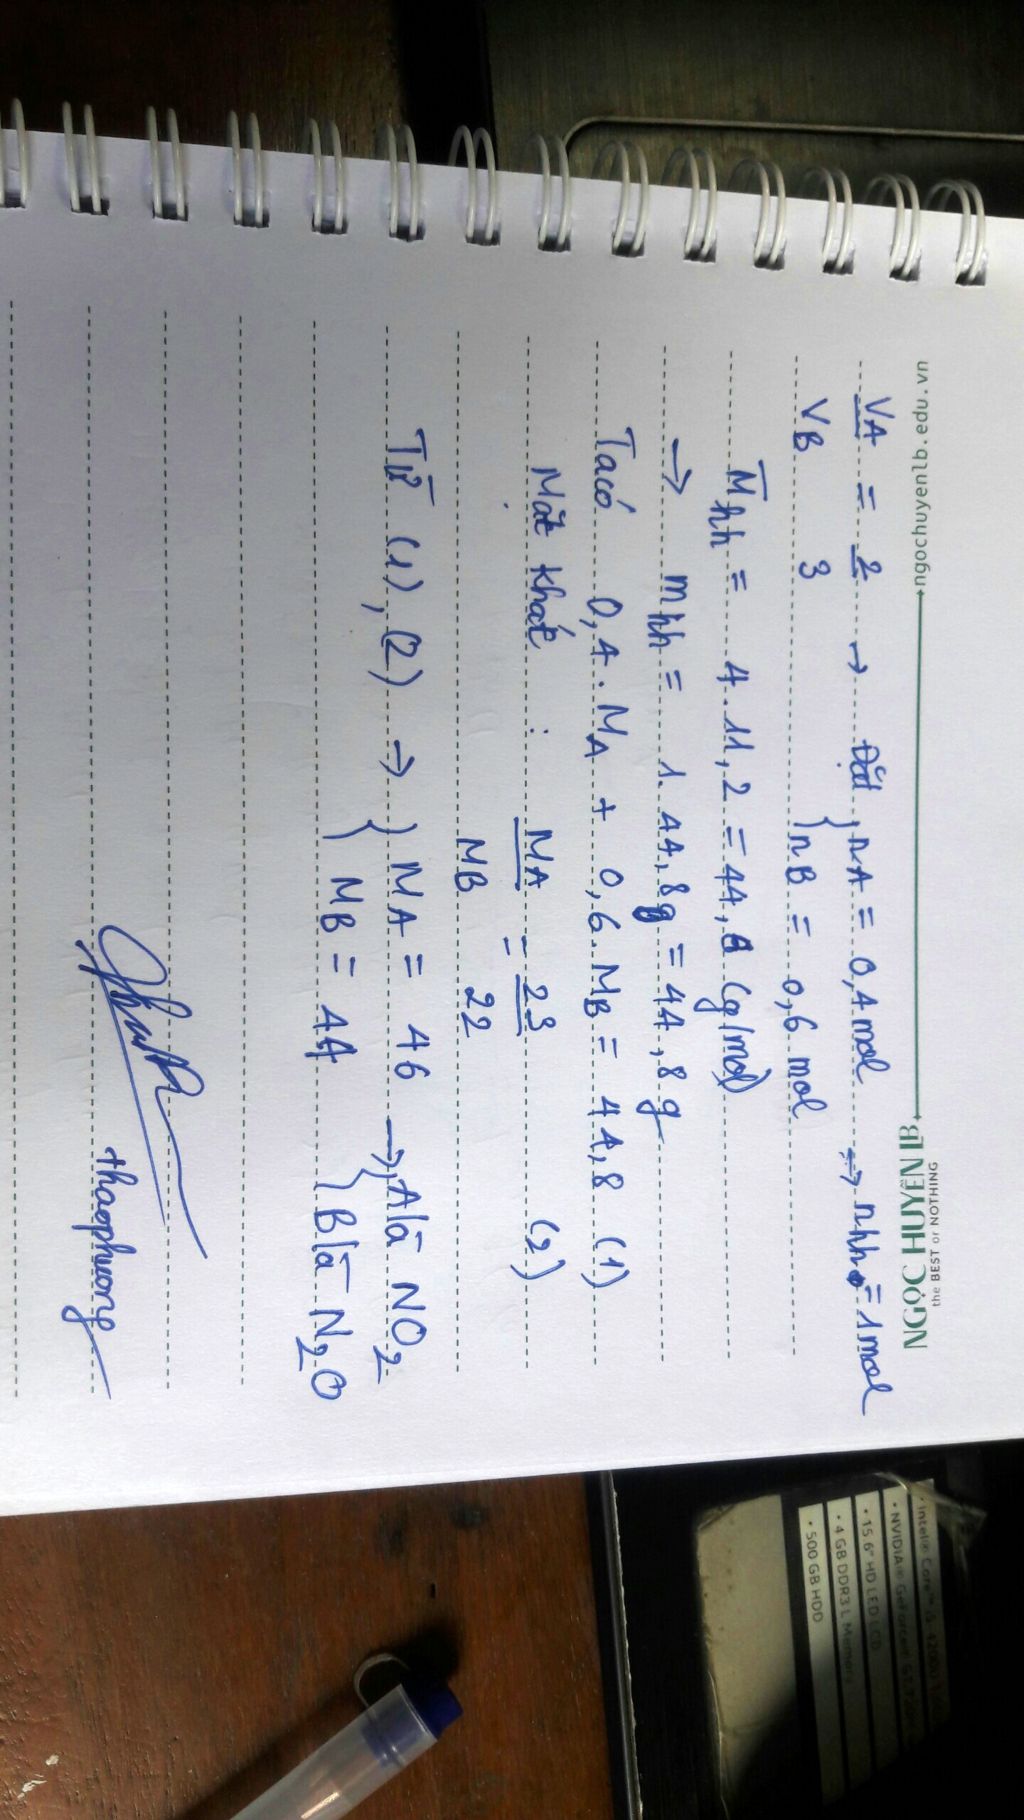 ngochuyenlb.edu.vn
NGỌC HUYỀN LB
the BEST or NOTHING
VA = 2 → Đặt { nA = 0,4 mol → nhh = 1 mol
VB 3 { nB = 0,6 mol
M̅hh = 4.11,2 = 44,8 (g/mol)
→ mhh = 1.44,8g = 44,8g
Ta có 0,4.MA + 0,6.MB = 44,8 (1)
Mặt khác : MA = 23 (2)
MB 22
Từ (1), (2) → { MA = 46 → { A là NO2
{ MB = 44 { B là N2O
thaophuong
• Intel® Core™ i5-4200U
• NVIDIA® GeForce®
• 15.6" HD LED LCD
• 4 GB DDR3 L Memory
• 500 GB HDD